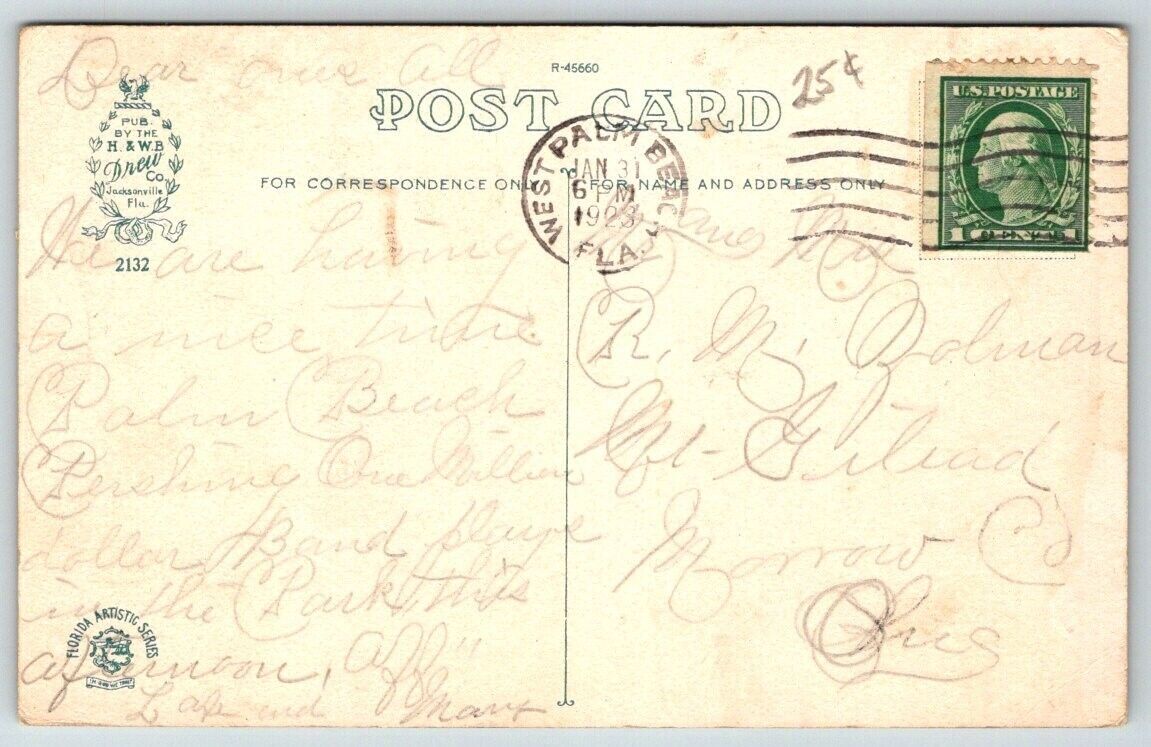 Dear ones all
R-45660
POST CARD
25¢
PUB.
BY THE
H. & W.B
Drew
Co.
Jacksonville
Fla.
2132
FOR CORRESPONDENCE ONLY
FOR NAME AND ADDRESS ONLY
WEST PALM BEACH
JAN 31
6 PM
1923
FLA.
U.S. POSTAGE
1 CENTS 1
We are having
a nice time
Palm Beach
Pershing One Million
dollar Band plays
in the Park this
afternoon,
and Mary
FLORIDA ARTISTIC SERIES
R. M. Bolman
Mt- Gilead
Morrow Co
Ohio